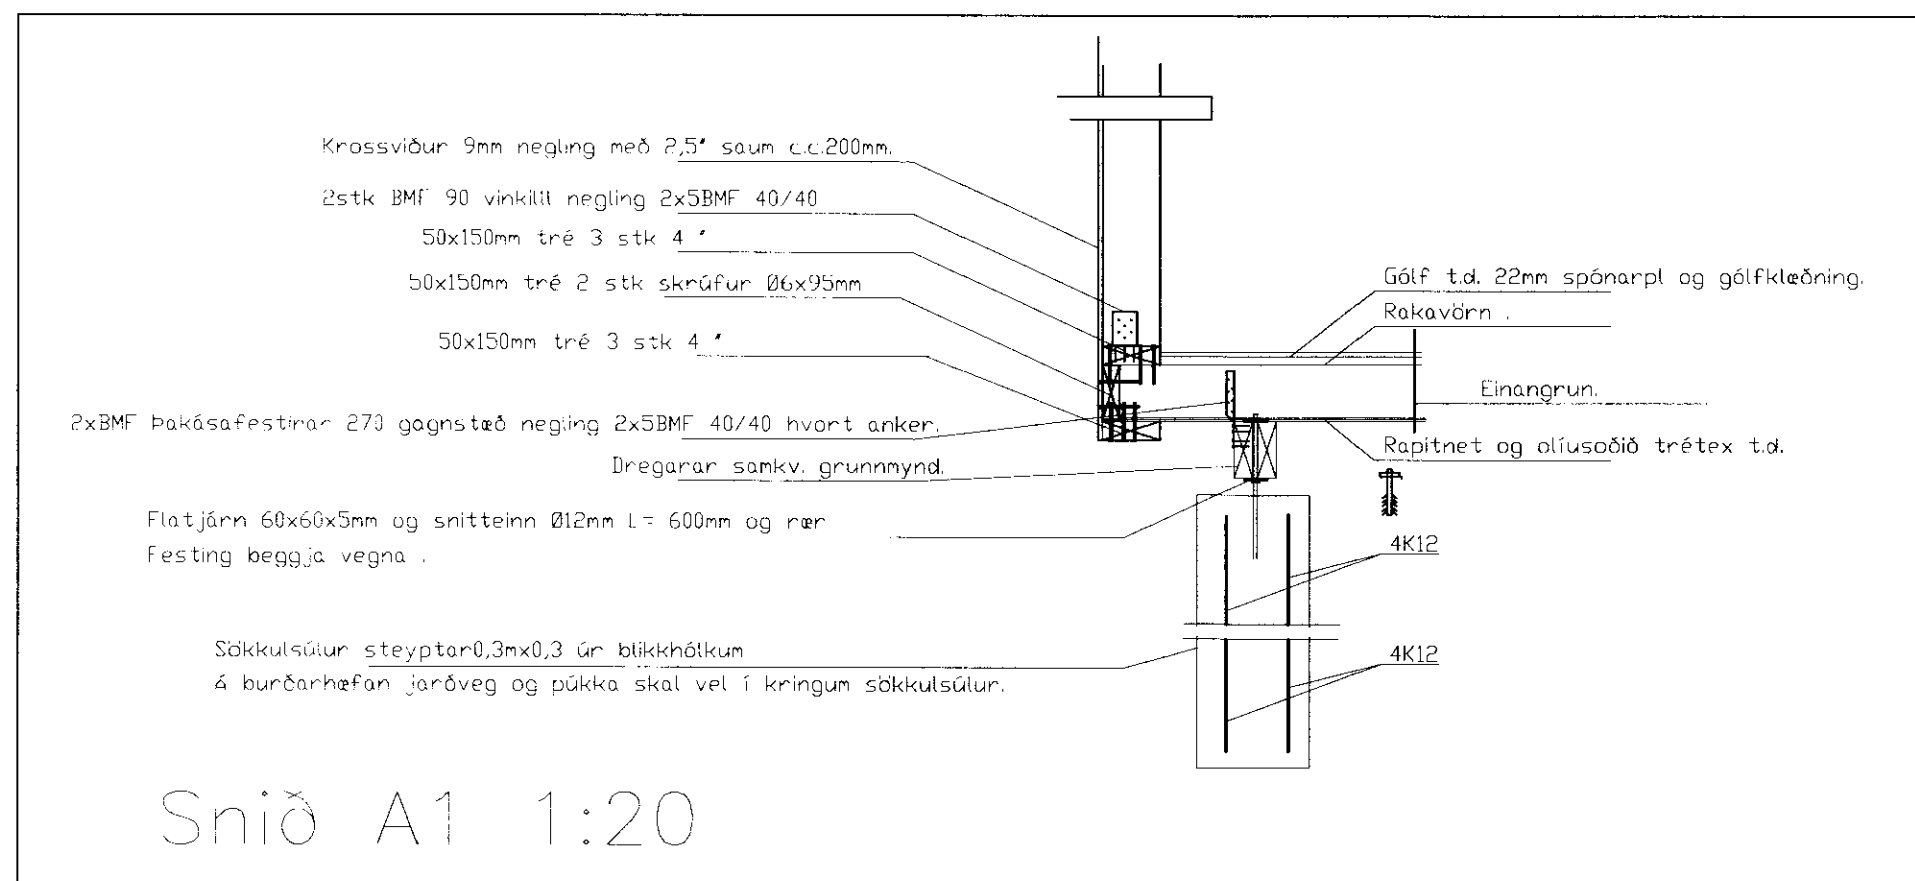 Krossviður 9mm negling með 2,5" saum c.c.200mm.
2stk BMF 90 vinkilll negling 2x5BMF 40/40
50x150mm tré 3 stk 4 "
50x150mm tré 2 stk skrúfur Ø6x95mm
50x150mm tré 3 stk 4 "
2xBMF Þakásafestirar 270 gagnstæð negling 2x5BMF 40/40 hvort anker.
Dregarar samkv. grunnmynd.
Flatjárn 60x60x5mm og snitteinn Ø12mm L= 600mm og rær
Festing beggja vegna .
Sökkulsúlur steyptar0,3mx0,3 úr blikkhólkum
á burðarhæfan jarðveg og púkka skal vel í kringum sökkulsúlur.
Gólf t.d. 22mm spónarpl og gólfklæðning.
Rakavörn .
Einangrun.
Rapitnet og olíusoðið trétex t.d.
4K12
4K12
Snið A1 1:20